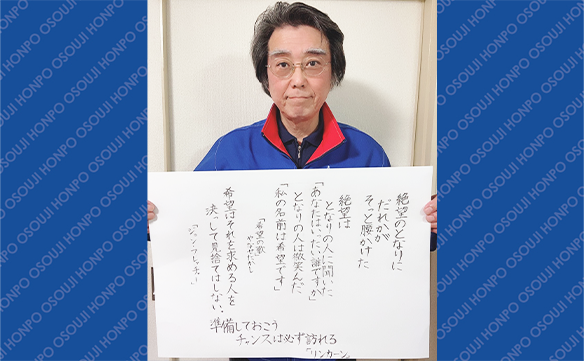 絶望のとなりに
だれかが
そっと腰かけた
絶望は
となりの人に聞いた
「あなたはいったい誰ですか」
となりの人は微笑んだ
「私の名前は希望です」
「希望の歌
やなせたかし」
希望はそれを求める人を
決して見捨てはしない.
準備しておこう
チャンスは必ず訪れる
「リンカーン」
OSOUJI HONPO